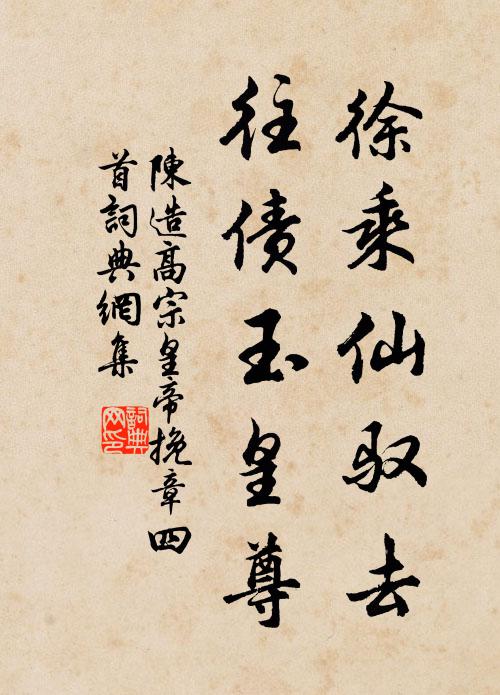 徐乘仙驭去
往债玉皇尊
陳造高宗皇帝挽章四
首詞典網集
詞典网印